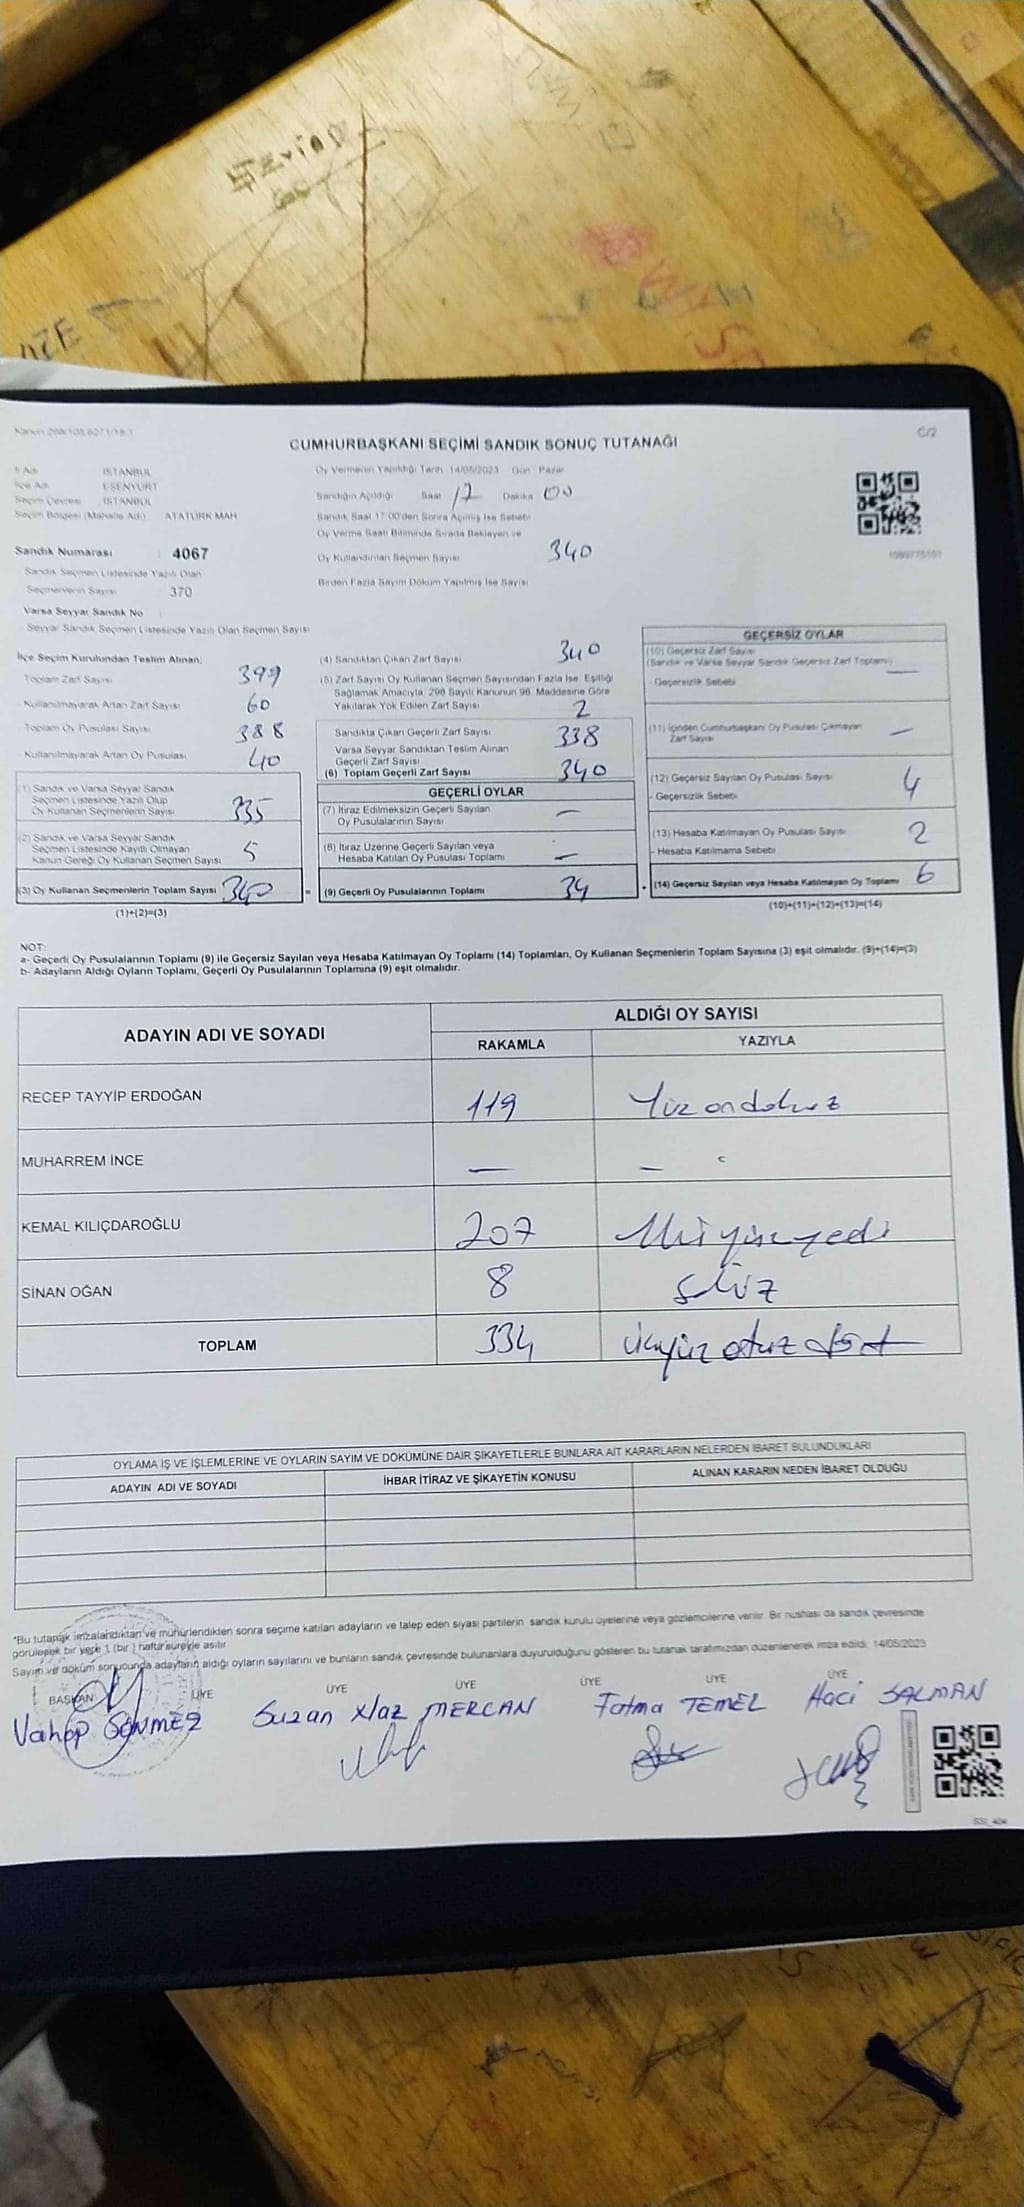 Kanun:298/105,6271/18-1
C/2
CUMHURBAŞKANI SEÇİMİ SANDIK SONUÇ TUTANAĞI
İl Adı : İSTANBUL
İlçe Adı : ESENYURT
Seçim Çevresi : İSTANBUL
Seçim Bölgesi (Mahalle Adı) : ATATÜRK MAH
Oy Vermenin Yapıldığı Tarih: 14/05/2023 Gün: Pazar
Sandığın Açıldığı Saat 17 Dakika 00
Sandık Saat 17:00'den Sonra Açılmış İse Sebebi
Oy Verme Saati Bitiminde Sırada Bekleyen ve
Oy Kullandırılan Seçmen Sayısı 340
Birden Fazla Sayım Döküm Yapılmış İse Sayısı
Sandık Numarası : 4067
Sandık Seçmen Listesinde Yazılı Olan
Seçmenlerin Sayısı 370
Varsa Seyyar Sandık No
Seyyar Sandık Seçmen Listesinde Yazılı Olan Seçmen Sayısı
İlçe Seçim Kurulundan Teslim Alınan;
Toplam Zarf Sayısı 399
- Kullanılmayarak Artan Zarf Sayısı 60
Toplam Oy Pusulası Sayısı 388
- Kullanılmayarak Artan Oy Pusulası 40
(1) Sandık ve Varsa Seyyar Sandık
Seçmen Listesinde Yazılı Olup
Oy Kullanan Seçmenlerin Sayısı 335
(2) Sandık ve Varsa Seyyar Sandık
Seçmen Listesinde Kayıtlı Olmayan
Kanun Gereği Oy Kullanan Seçmen Sayısı 5
(3) Oy Kullanan Seçmenlerin Toplam Sayısı 340
(1)+(2)=(3)
(4) Sandıktan Çıkan Zarf Sayısı 340
(5) Zarf Sayısı Oy Kullanan Seçmen Sayısından Fazla İse, Eşitliği
Sağlamak Amacıyla, 298 Sayılı Kanunun 98. Maddesine Göre
Yakılarak Yok Edilen Zarf Sayısı 2
Sandıkta Çıkan Geçerli Zarf Sayısı 338
Varsa Seyyar Sandıktan Teslim Alınan
Geçerli Zarf Sayısı
(6) Toplam Geçerli Zarf Sayısı 340
GEÇERLİ OYLAR
(7) İtiraz Edilmeksizin Geçerli Sayılan
Oy Pusulalarının Sayısı —
(8) İtiraz Üzerine Geçerli Sayılan veya
Hesaba Katılan Oy Pusulası Toplamı —
= (9) Geçerli Oy Pusulalarının Toplamı 34
GEÇERSİZ OYLAR
(10) Geçersiz Zarf Sayısı
(Sandık ve Varsa Seyyar Sandık Geçersiz Zarf Toplamı) —
- Geçersizlik Sebebi
(11) İçinden Cumhurbaşkanı Oy Pusulası Çıkmayan
Zarf Sayısı —
(12) Geçersiz Sayılan Oy Pusulası Sayısı 4
- Geçersizlik Sebebi
(13) Hesaba Katılmayan Oy Pusulası Sayısı 2
- Hesaba Katılmama Sebebi
+ (14) Geçersiz Sayılan veya Hesaba Katılmayan Oy Toplamı 6
(10)+(11)+(12)+(13)=(14)
NOT:
a- Geçerli Oy Pusulalarının Toplamı (9) ile Geçersiz Sayılan veya Hesaba Katılmayan Oy Toplamı (14) Toplamları, Oy Kullanan Seçmenlerin Toplam Sayısına (3) eşit olmalıdır. (9)+(14)=(3)
b- Adayların Aldığı Oyların Toplamı, Geçerli Oy Pusulalarının Toplamına (9) eşit olmalıdır.
ADAYIN ADI VE SOYADI
ALDIĞI OY SAYISI
RAKAMLA YAZIYLA
RECEP TAYYİP ERDOĞAN 119 Yüz ondokuz
MUHARREM İNCE — —
KEMAL KILIÇDAROĞLU 207 İkiyüzyedi
SİNAN OĞAN 8 sekiz
TOPLAM 334 Üçyüz otuz dört
OYLAMA İŞ VE İŞLEMLERİNE VE OYLARIN SAYIM VE DÖKÜMÜNE DAİR ŞİKAYETLERLE BUNLARA AİT KARARLARIN NELERDEN İBARET BULUNDUKLARI
ADAYIN ADI VE SOYADI İHBAR İTİRAZ VE ŞİKAYETİN KONUSU ALINAN KARARIN NEDEN İBARET OLDUĞU
*Bu tutanak imzalandıktan ve mühürlendikten sonra seçime katılan adayların ve talep eden siyasi partilerin sandık kurulu üyelerine veya gözlemcilerine verilir. Bir nüshası da sandık çevresinde
görülecek bir yere 1 (bir) hafta süreyle asılır.
Sayım ve döküm sonucunda adayların aldığı oyların sayılarını ve bunların sandık çevresinde bulunanlara duyurulduğunu gösteren bu tutanak tarafımızdan düzenlenerek imza edildi. 14/05/2023
BAŞKAN ÜYE ÜYE ÜYE ÜYE ÜYE ÜYE
Vahap SÖNMEZ Suzan MERCAN Fatma TEMEL Haci SALMAN